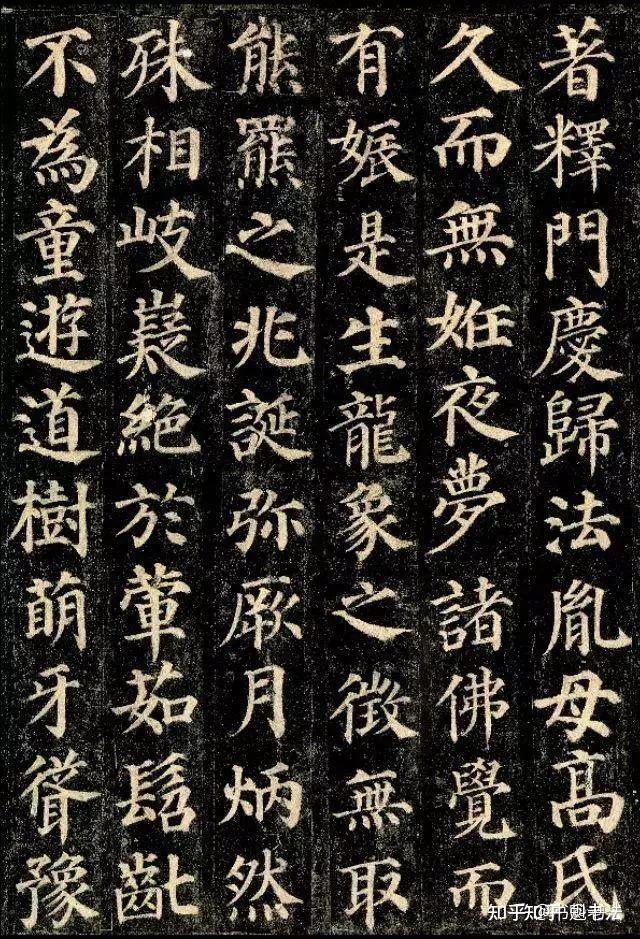 著釋門慶歸法胤母高氏
久而無姙夜夢諸佛覺而
有娠是生龍象之徵無取
熊羆之兆誕弥厥月炳然
殊相岐嶷絶於葷茹髫齔
不為童遊道樹萌牙聳豫